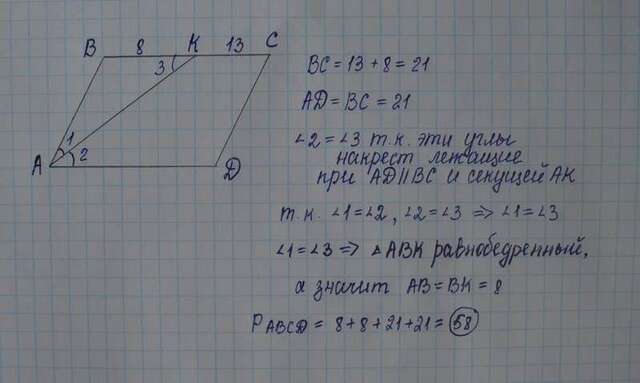 B 8 K 13 C
3
1
2
A
D
BC = 13 + 8 = 21
AD = BC = 21
∠2 = ∠3 т.к. эти углы
накрест лежащие
при AD || BC и секущей AK
т.к. ∠1 = ∠2, ∠2 = ∠3 ⇒ ∠1 = ∠3
∠1 = ∠3 ⇒ △ABK равнобедренный,
а значит AB = BK = 8
P ABCD = 8 + 8 + 21 + 21 = 58